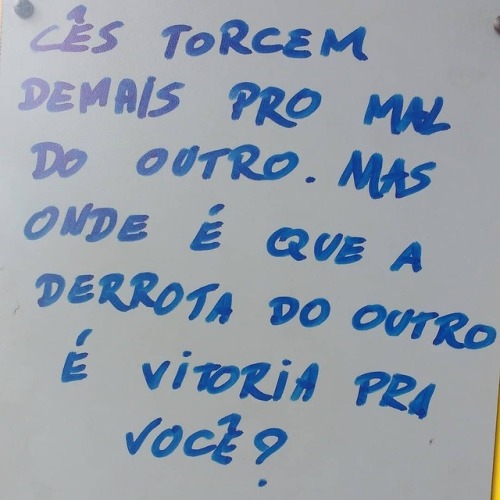 CÊS TORCEM
DEMAIS PRO MAL
DO OUTRO. MAS
ONDE É QUE A
DERROTA DO OUTRO
É VITORIA PRA
VOCÊ?